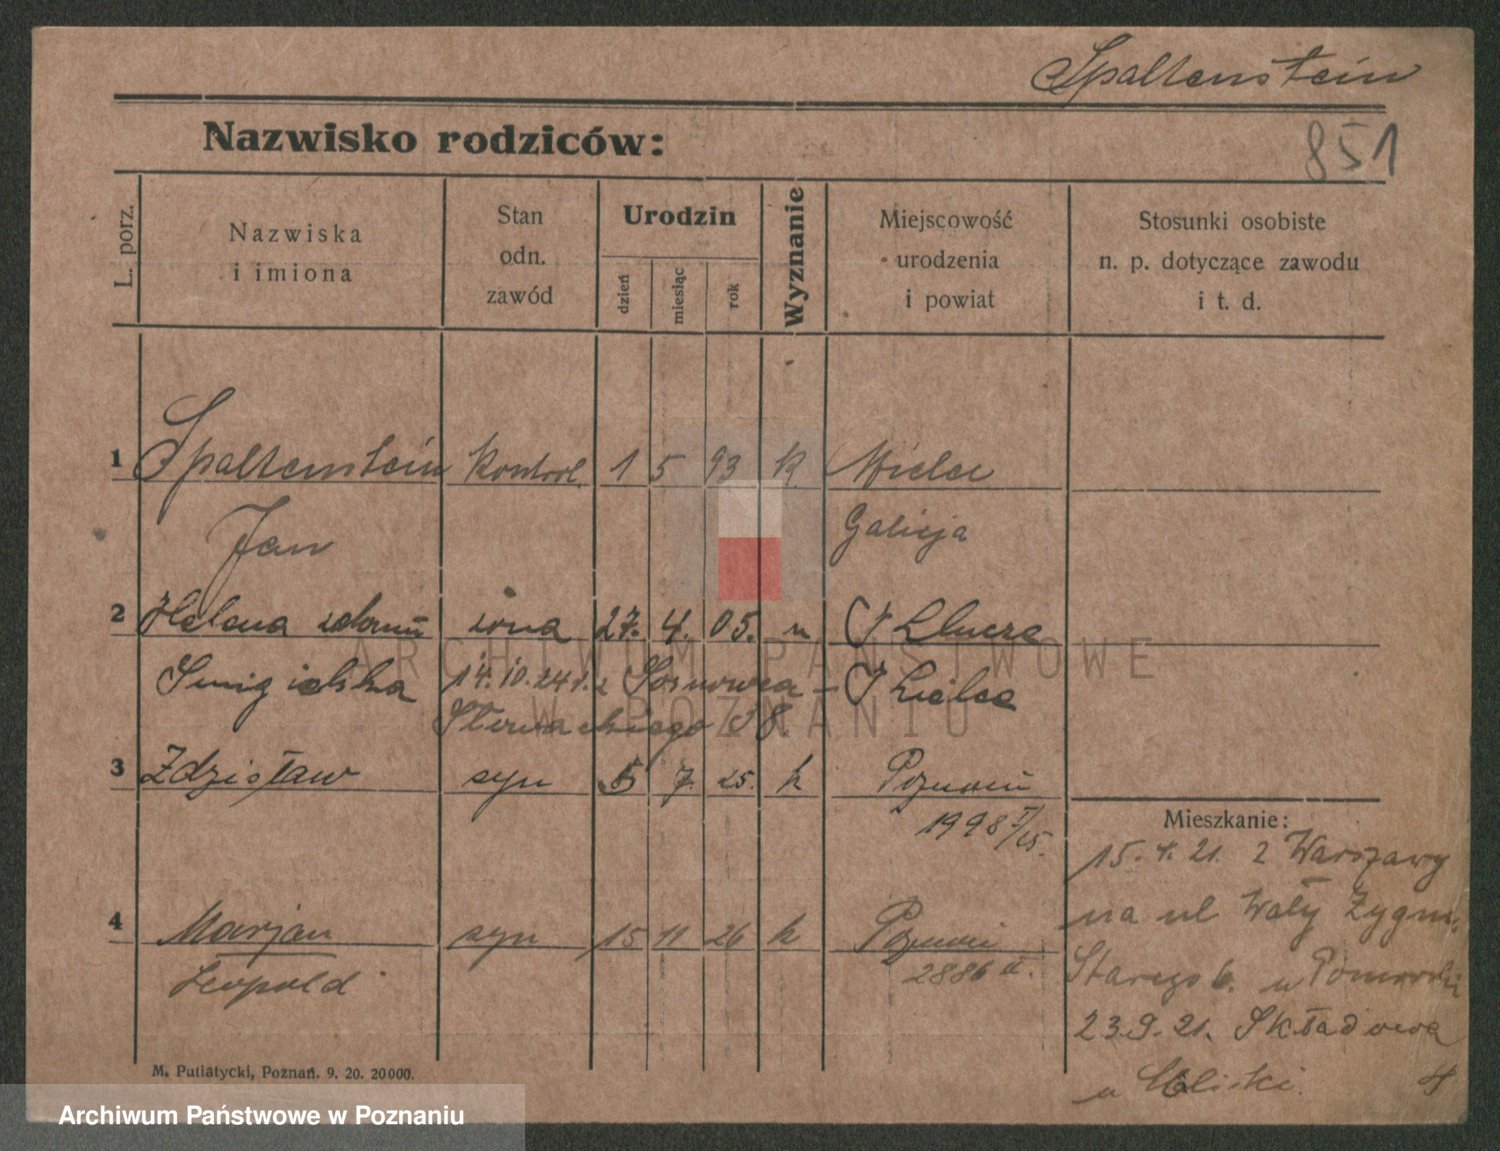 Spaltenstein
Nazwisko rodziców:
851
L. porz.
Nazwiska
i imiona
Stan
odn.
zawód
Urodzin
dzień
miesiąc
rok
Wyznanie
Miejscowość
urodzenia
i powiat
Stosunki osobiste
n. p. dotyczące zawodu
i t. d.
1 Spaltenstein kontrol. 1 5 93 k Mielec
Jan Galicja
2 Helena żona 27. 4. 05.
Smigielska 14.10.24 Sosnowca
3 Zdzisław syn 5 7. 25. k Poznań
1998
4 Marjan syn 15 11 26 k Poznań
Leopold 2886 II.
Mieszkanie:
15.4.21. z Warszawy
na ul Wały Zygm.
Starego 6. u
23.9.21. Składowa
4
ARCHIWUM PAŃSTWOWE
W POZNANIU
M. Putiatycki, Poznań. 9. 20. 20000.
Archiwum Państwowe w Poznaniu